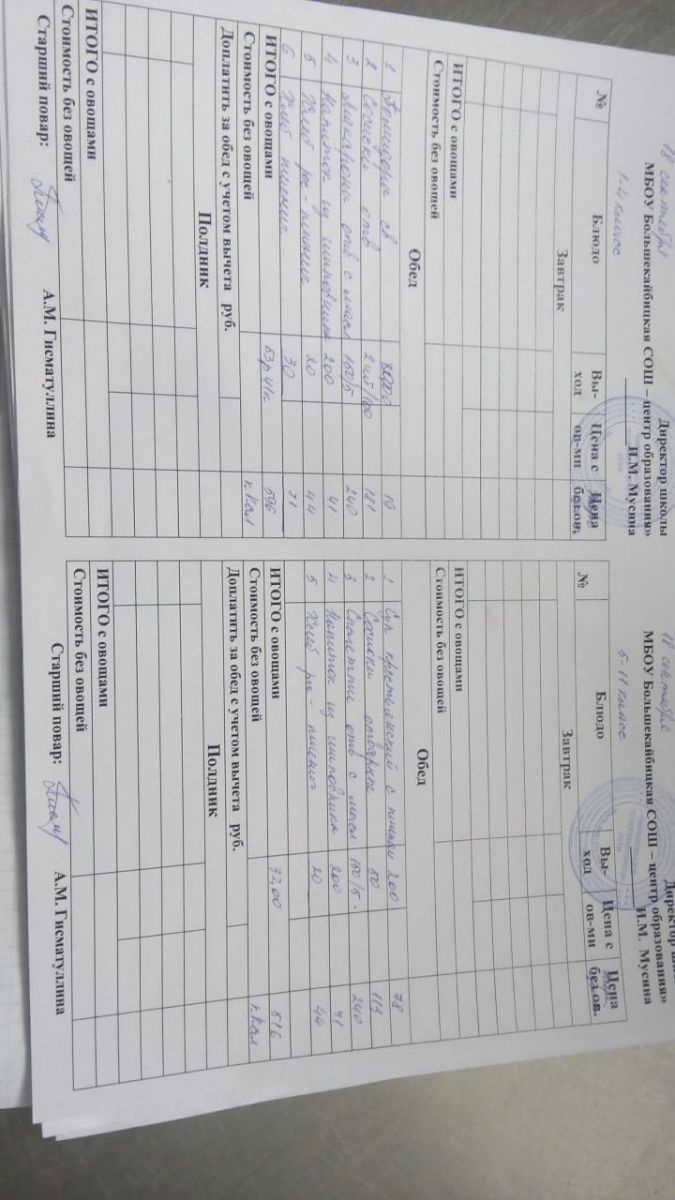 Директор школы
МБОУ Большекайбицкая СОШ – центр образования»
И.М. Мусина
18 сентября
1-4 классе
№ Блюдо Вы-ход Цена с ов-ми Цена без.ов.
Завтрак
ИТОГО с овощами
Стоимость без овощей
Обед
1 Помидоры св 19
2 Сосиски отв 2 шт/100 181
3 Макароны отв с масл 150/5 240
4 Напиток из шиповника 200 41
5 Хлеб рж-пшенич 20 44
6 Хлеб пшенич 30 71
ИТОГО с овощами 63р41к 596
Стоимость без овощей к.Кал
Доплатить за обед с учетом вычета руб.
Полдник
ИТОГО с овощами
Стоимость без овощей
Старший повар: А.М. Гисматуллина
МБОУ Большекайбицкая СОШ – центр образования»
И.М. Мусина
18 сентября
5-11 классе
№ Блюдо Вы-ход Цена с ов-ми Цена без.ов.
Завтрак
ИТОГО с овощами
Стоимость без овощей
Обед
1 Суп крестьянский с 200 78
2 Сосиски отварные 50 113
3 Спагетти отв с масл 150/5 240
4 Напиток из шиповника 200 41
5 Хлеб рж-пшенич 20 44
ИТОГО с овощами 32,00 516
Стоимость без овощей к.Кал
Доплатить за обед с учетом вычета руб.
Полдник
ИТОГО с овощами
Стоимость без овощей
Старший повар: А.М. Гисматуллина